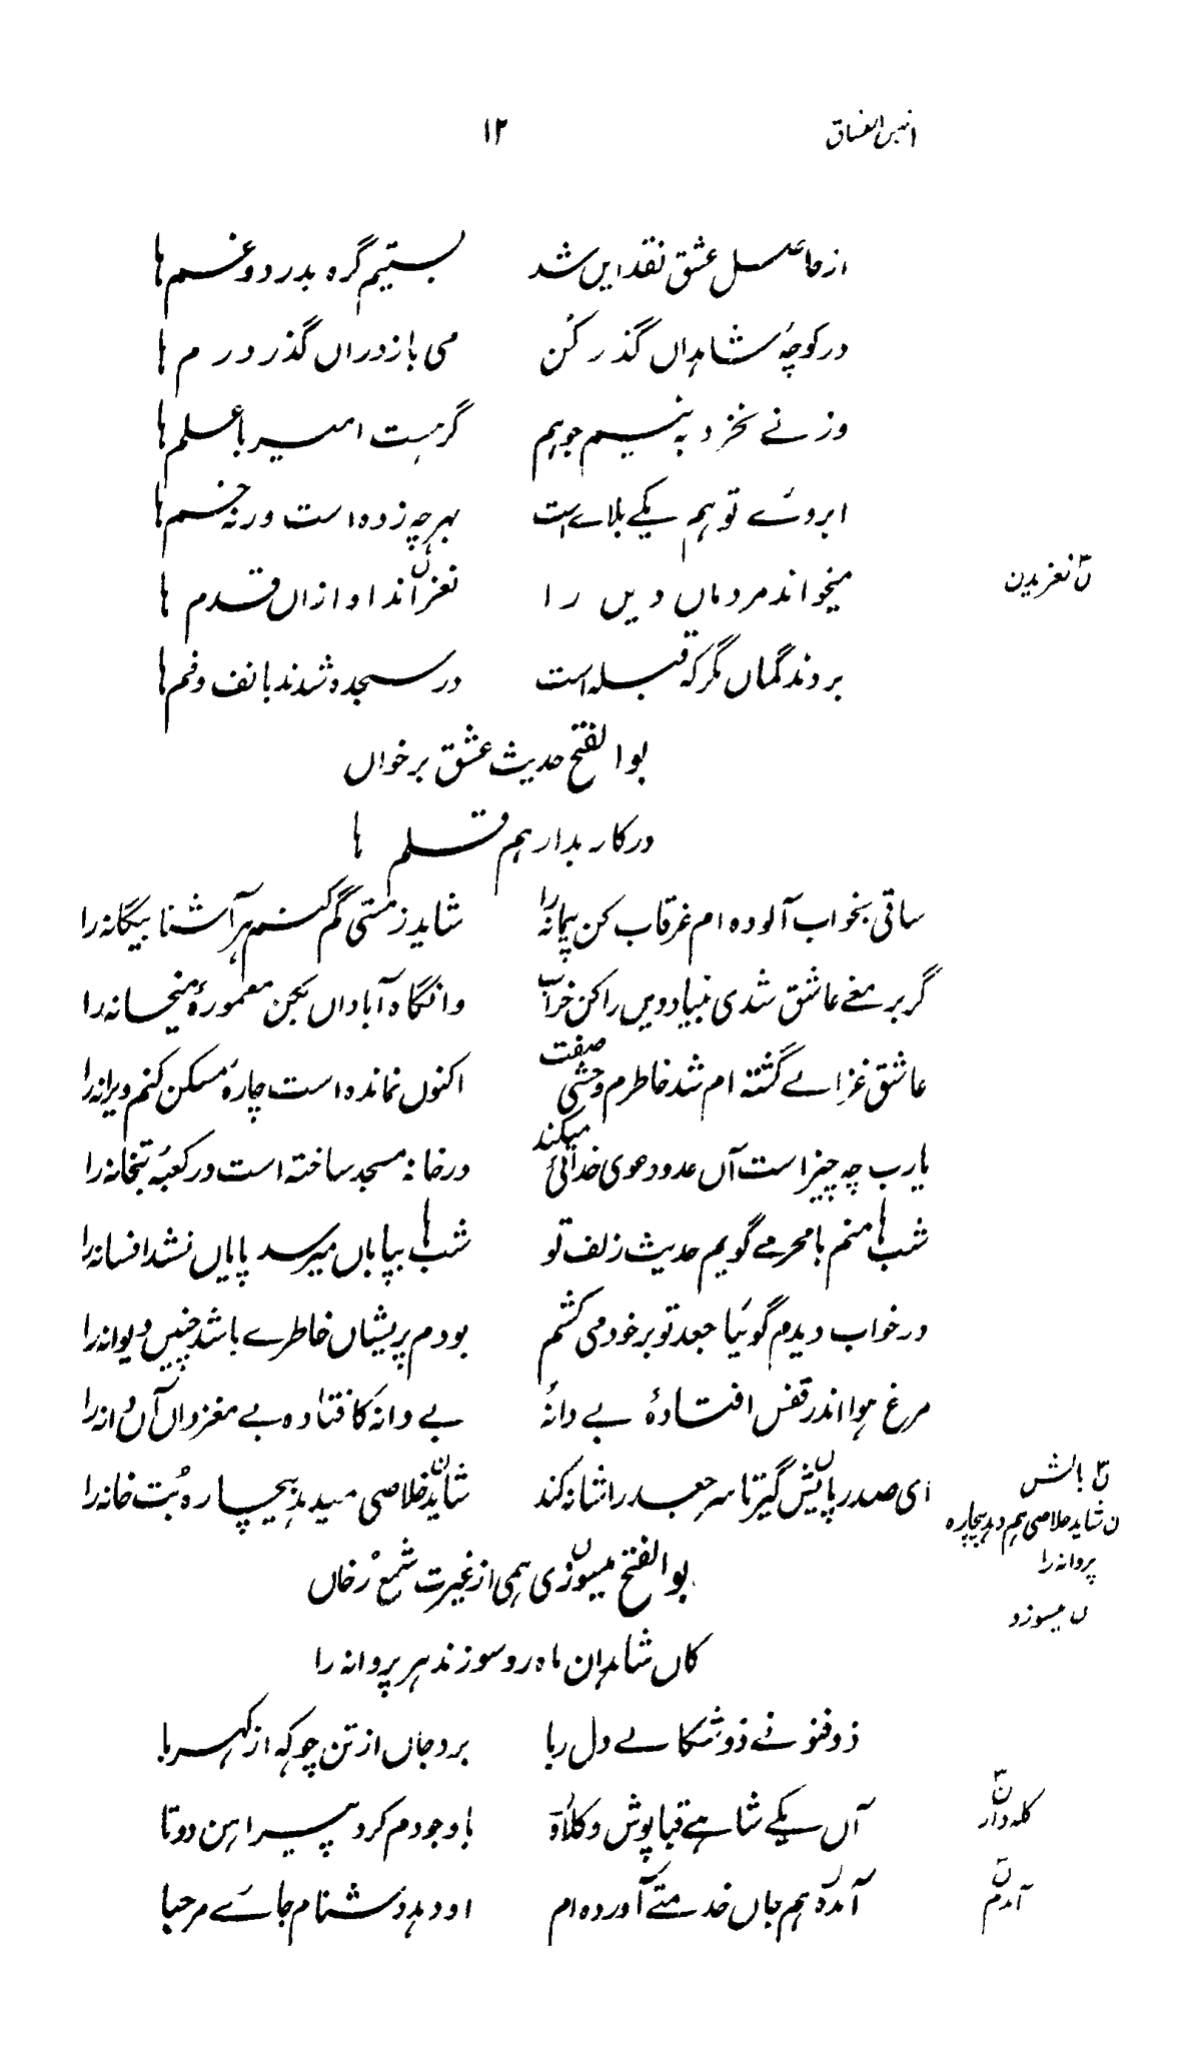 انیس العشاق ۱۲
از حاصل عشق نقد ایں شد بستیم گرہ بدرد و غم ہا
در کوچۂ شاہداں گذر کن می باز دراں گذر درم ہا
وز نے نخرد بہ نیم جو ہم گر ہست امیر با علم ہا
ابروے تو ہم یکے بلاے است بہر چہ زدہ است ورنہ خم ہا
میخواند مردماں دیں را نغزاند او ازاں قدم ہا
ن نغزیدن
بردند گماں مگر کہ قبلہ است در سجدہ شدند با نف و فم ہا
بوالفتح حدیث عشق برخواں
در کار بدار ہم قلم ہا
ساقی بخواب آلودہ ام غرقاب کن پیمانہ را شاید ز مستی گم کنم ہر آشنا بیگانہ را
گر بر مغے عاشق شدی بنیاد دیں را کن خراب وانگاہ آباداں بکن معمورۂ میخانہ را
عاشق غزالے گشتہ ام شد خاطرم وحشی صفت اکنوں نماندہ است چارہ مسکن کنم ویرانہ را
یارب چہ چیز است آں عدو دعوی خدائی میکند در خانہ مسجد ساختہ است در کعبہ بتخانہ را
شب ہا منم با محرمے گویم حدیث زلف تو شب ہا بپایاں میرسد پایاں نشد افسانہ را
در خواب دیدم گوئیا جعد تو بر خود می کشم بودم پریشاں خاطرے باشد چنیں دیوانہ را
مرغ ہوا اندر قفس افتادہ بے دانہ بے دانہ کافتادہ بے مغز داں آں دانہ را
ای صدر پایش گیر تا سر جعد را شانہ کند شاید خلاصی میدہد بیچارہ بت خانہ را
ن بالش
ن شاید خلاصی ہم دہد بیچارہ
پروانہ را
بوالفتح میسوزی ہمی از غیرت شمع رخاں
ن میسوزد
کاں شاہدان ماہ رو سوزند ہر پروانہ را
ذوفنونے ذو شکالے دل ربا برد جاں از تن چو کہ از کہربا
آں یکے شاہے قبا پوش و کلاہ با وجودم کرد پیراہن دوتا
ن کلہ دار
آمدہ ہم جاں خدمتے آوردہ ام او دہد دشنام جائے مرحبا
ن آمدم